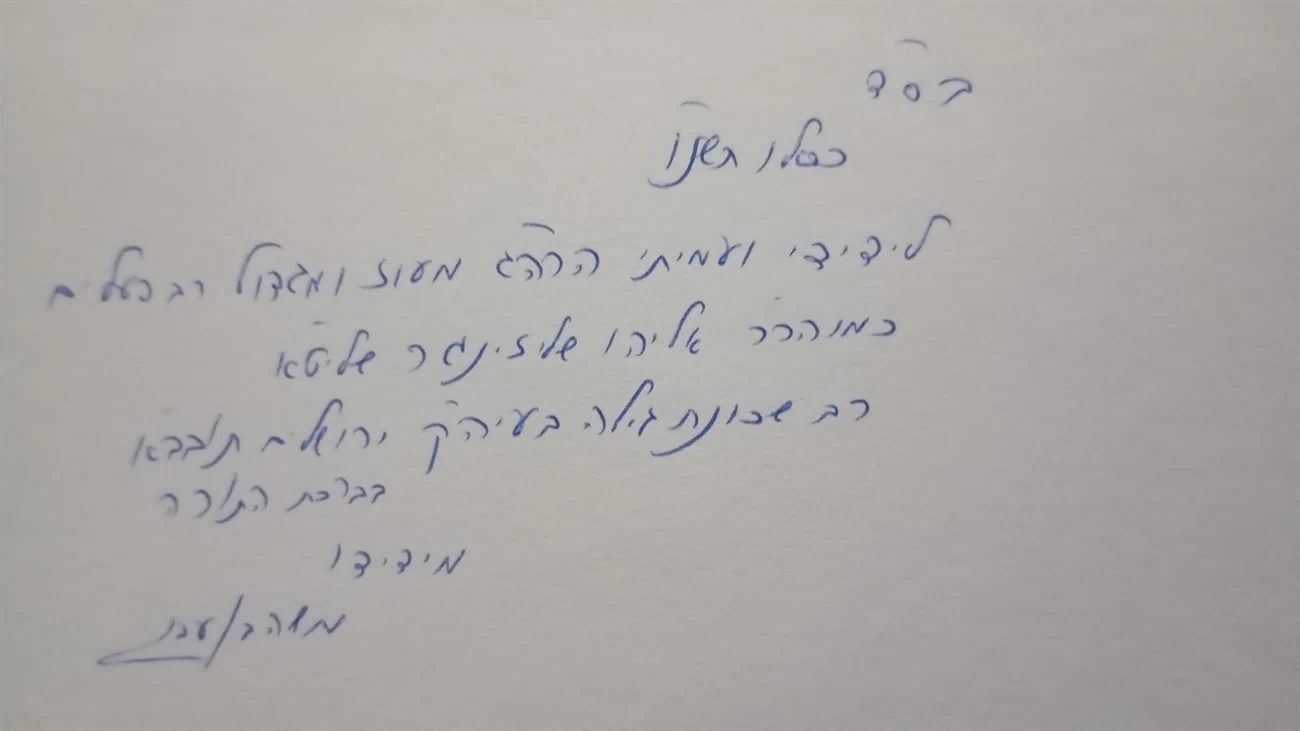 בס״ד
כסלו תשנ״ו
לידידי ועמיתי הרה״ג מעוז ומגדול רב פעלים
כמוהרר אליהו שלזינגר שליט״א
רב שכונת גילה בעיה״ק ירושלים תובבא
בברכת התורה
מידידו
משה בן